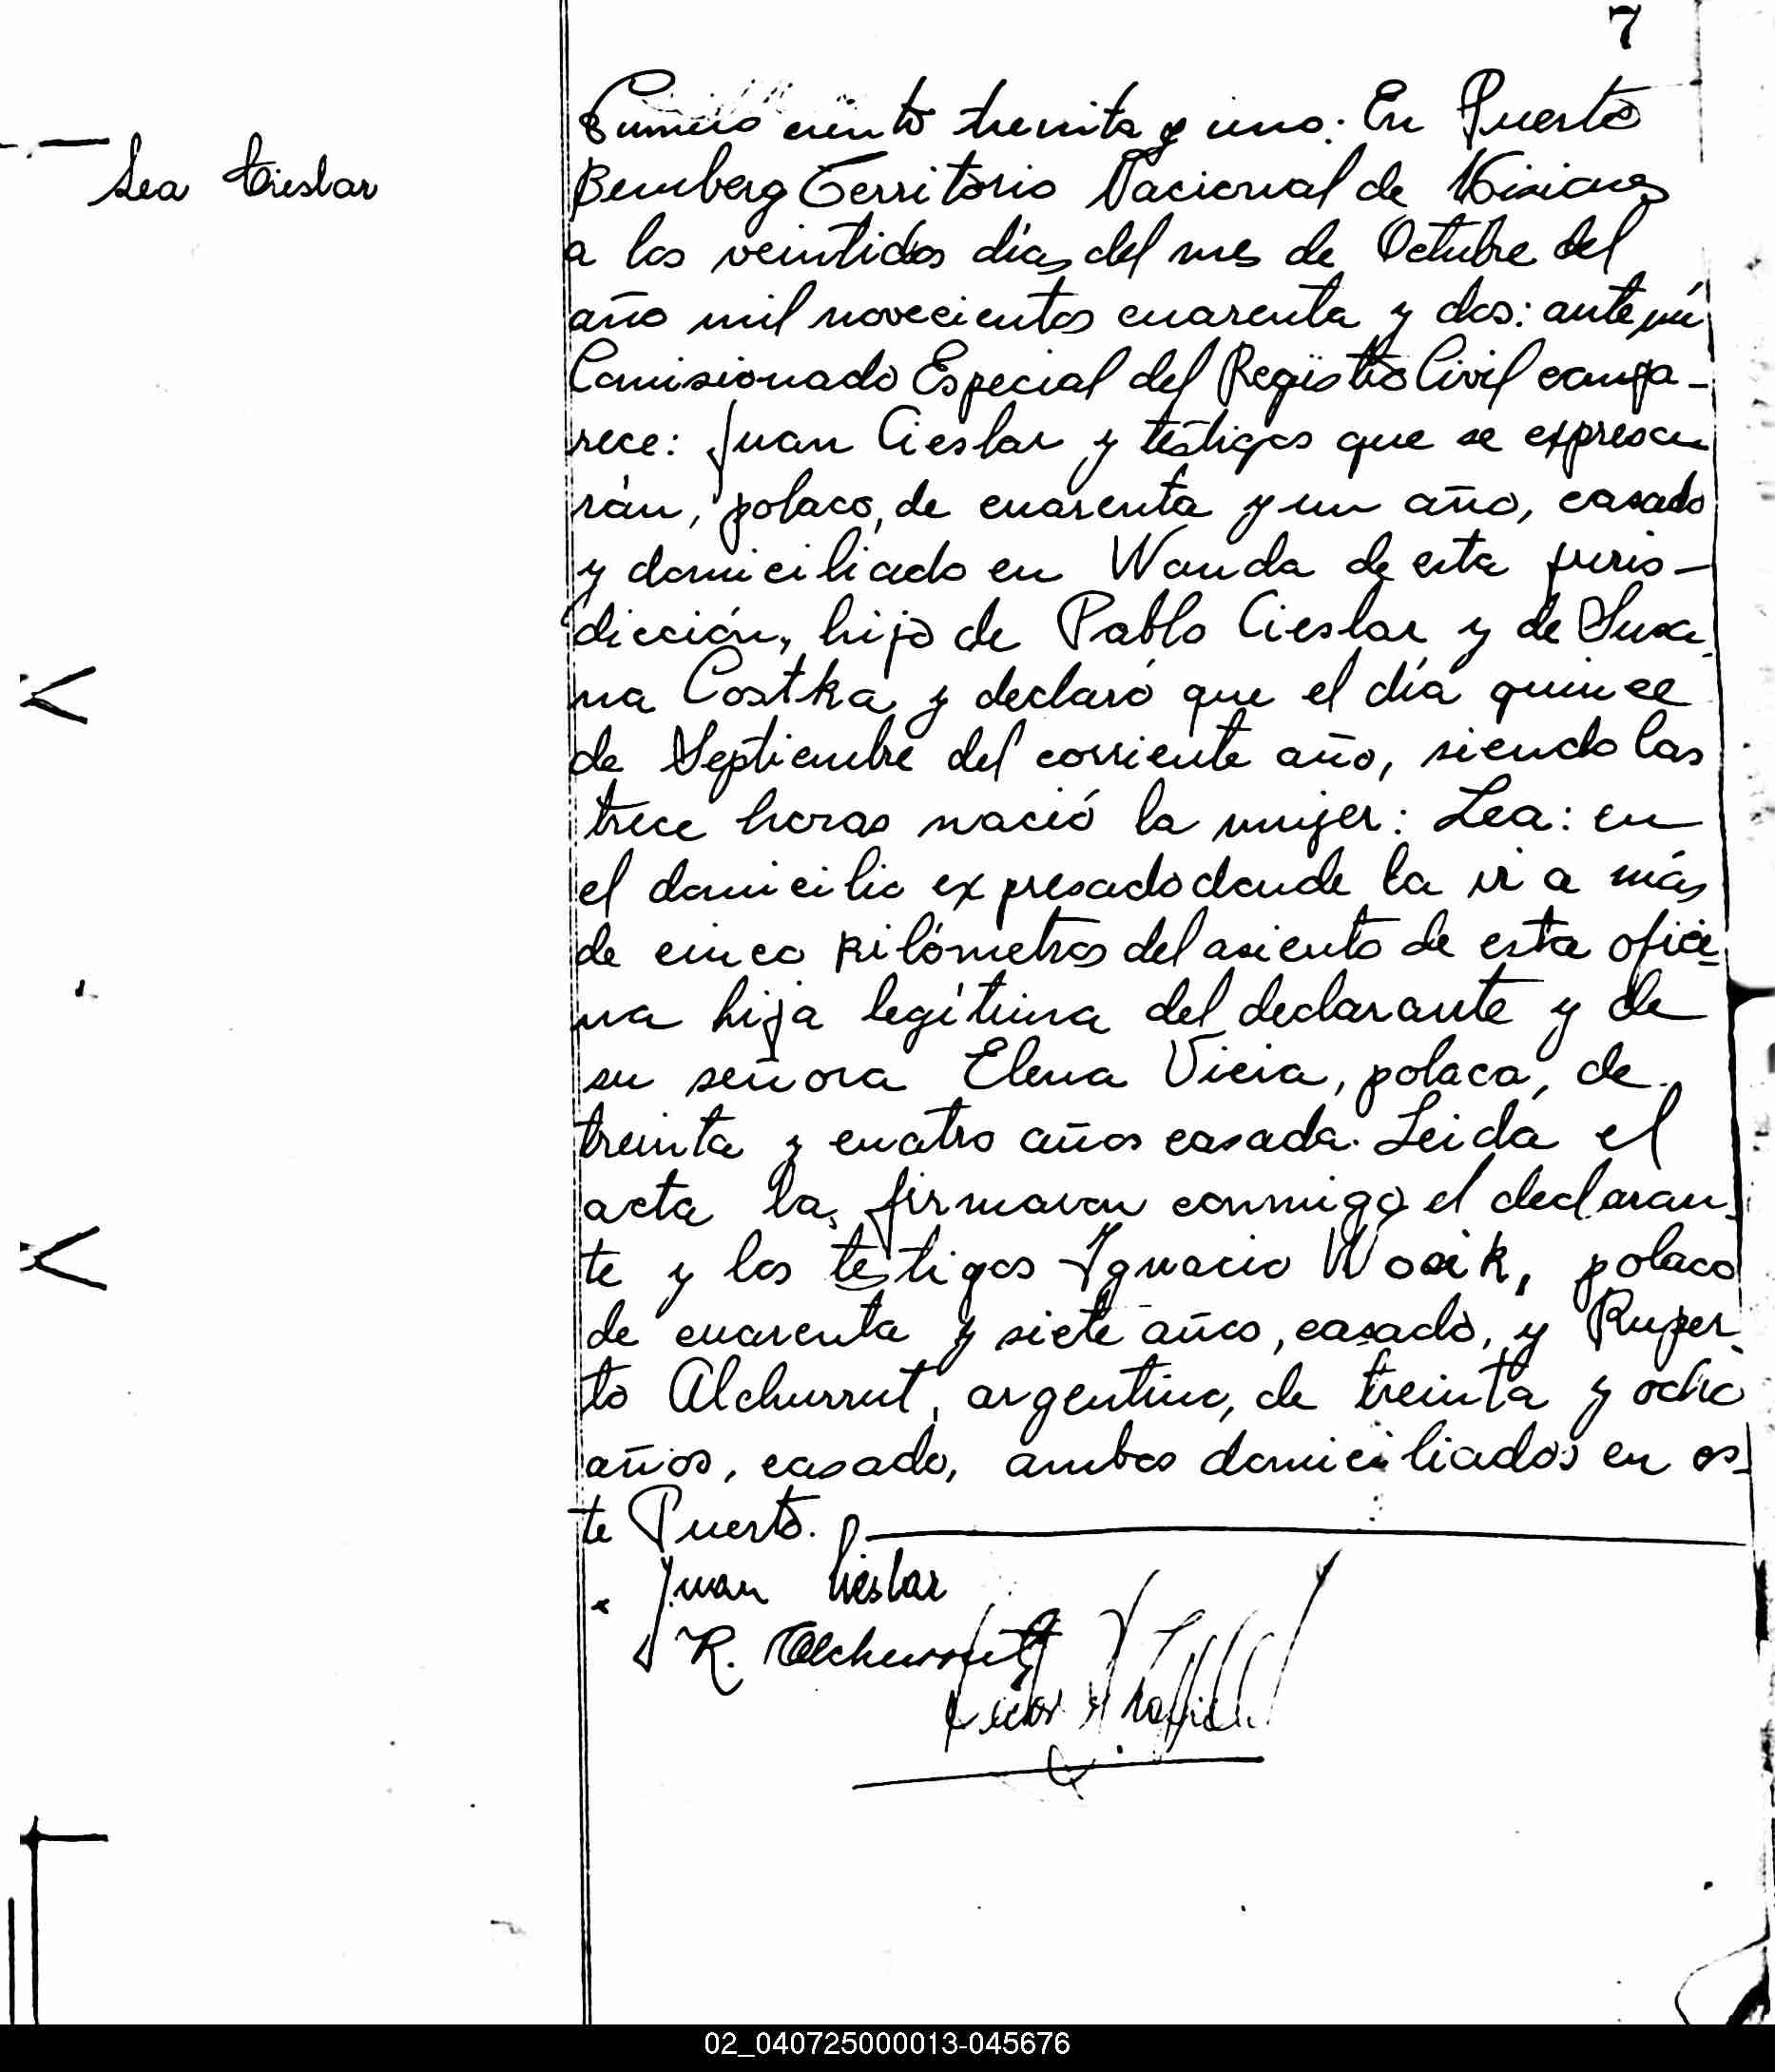 7
Lea Cieslar
Número ciento treinta y uno: En Puerto
Bemberg Territorio Nacional de Misiones
a los veintidos días del mes de Octubre del
año mil novecientos cuarenta y dos: ante mí
Comisionado Especial del Registro Civil compa-
rece: Juan Cieslar y testigos que se expresa
rán, polaco, de cuarenta y un año, casado
y domiciliado en Wanda de esta juris-
dicción, hijo de Pablo Cieslar y de Susa-
na Costka y declaró que el día quince
de Septiembre del corriente año, siendo las
trece horas nació la mujer: Lea: en
el domicilio expresado donde la vi a más
de cinco kilómetros del asiento de esta ofici-
na hija legítima del declarante y de
su señora Elena Vicia, polaca, de
treinta y cuatro años casada. Leida el
acta la firmaron conmigo el declaran-
te y los testigos Ignacio Wosik, polaco
de cuarenta y siete años, casado, y Ruper-
to Alchurrut, argentino, de treinta y ocho
años, casado, ambos domiciliados en es-
te Puerto.
Juan Cieslar
R. Alchurrut
02_040725000013-045676